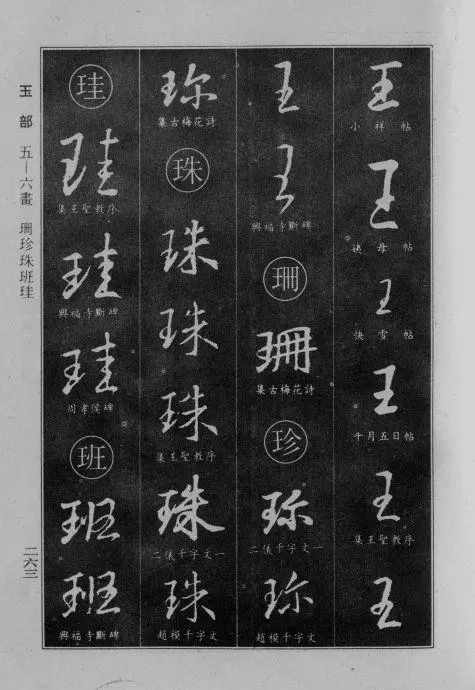 王
小祥帖
王
姨母帖
王
快雪帖
王
十月五日帖
王
集王聖教序
王
王
王
興福寺斷碑
珊
珊
集古梅花詩
珍
珎
二儀千字文一
珎
趙模千字文
珎
集古梅花詩
珠
珠
珠
珠
集王聖教序
珠
二儀千字文一
珠
趙模千字文
珪
珪
集王聖教序
珪
興福寺斷碑
珪
周孝侯碑
班
班
班
興福寺斷碑
玉部 五—六畫 珊珍珠班珪
二六三